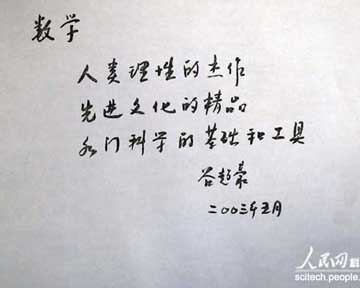 数学
人类理性的杰作
先进文化的精品
各门科学的基础和工具
谷超豪
二〇〇三年五月
人民网
scitech.people.